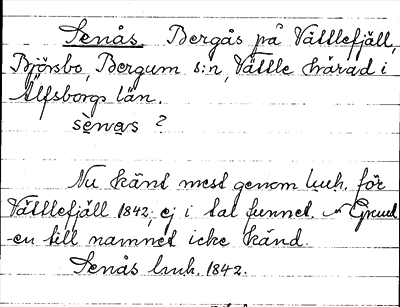 Senås. Bergås på Vättlefjäll,
Björsbo, Bergum s:n, Vättle härad i
Älfsborgs län.
sènas ?
Nu känt mest genom luk. för
Vättlefjäll 1842; ej i tal funnet. Grund
-en till namnet icke känd.
Senås luk. 1842.